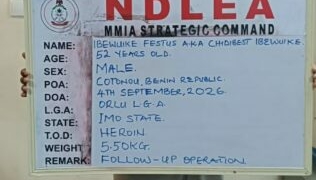 NDLEA
MMIA STRATEGIC COMMAND
NAME: IBEWUIKE FESTUS A.K.A CHIDIBEST IBEWUIKE.
AGE: 52 YEARS OLD.
SEX: MALE.
POA: COTONOU, BENIN REPUBLIC.
DOA: 4TH SEPTEMBER, 2026.
L.G.A: ORLU L.G.A.
STATE: IMO STATE.
T.O.D: HEROIN.
WEIGHT: 5.50KG.
REMARK: FOLLOW-UP OPERATION.